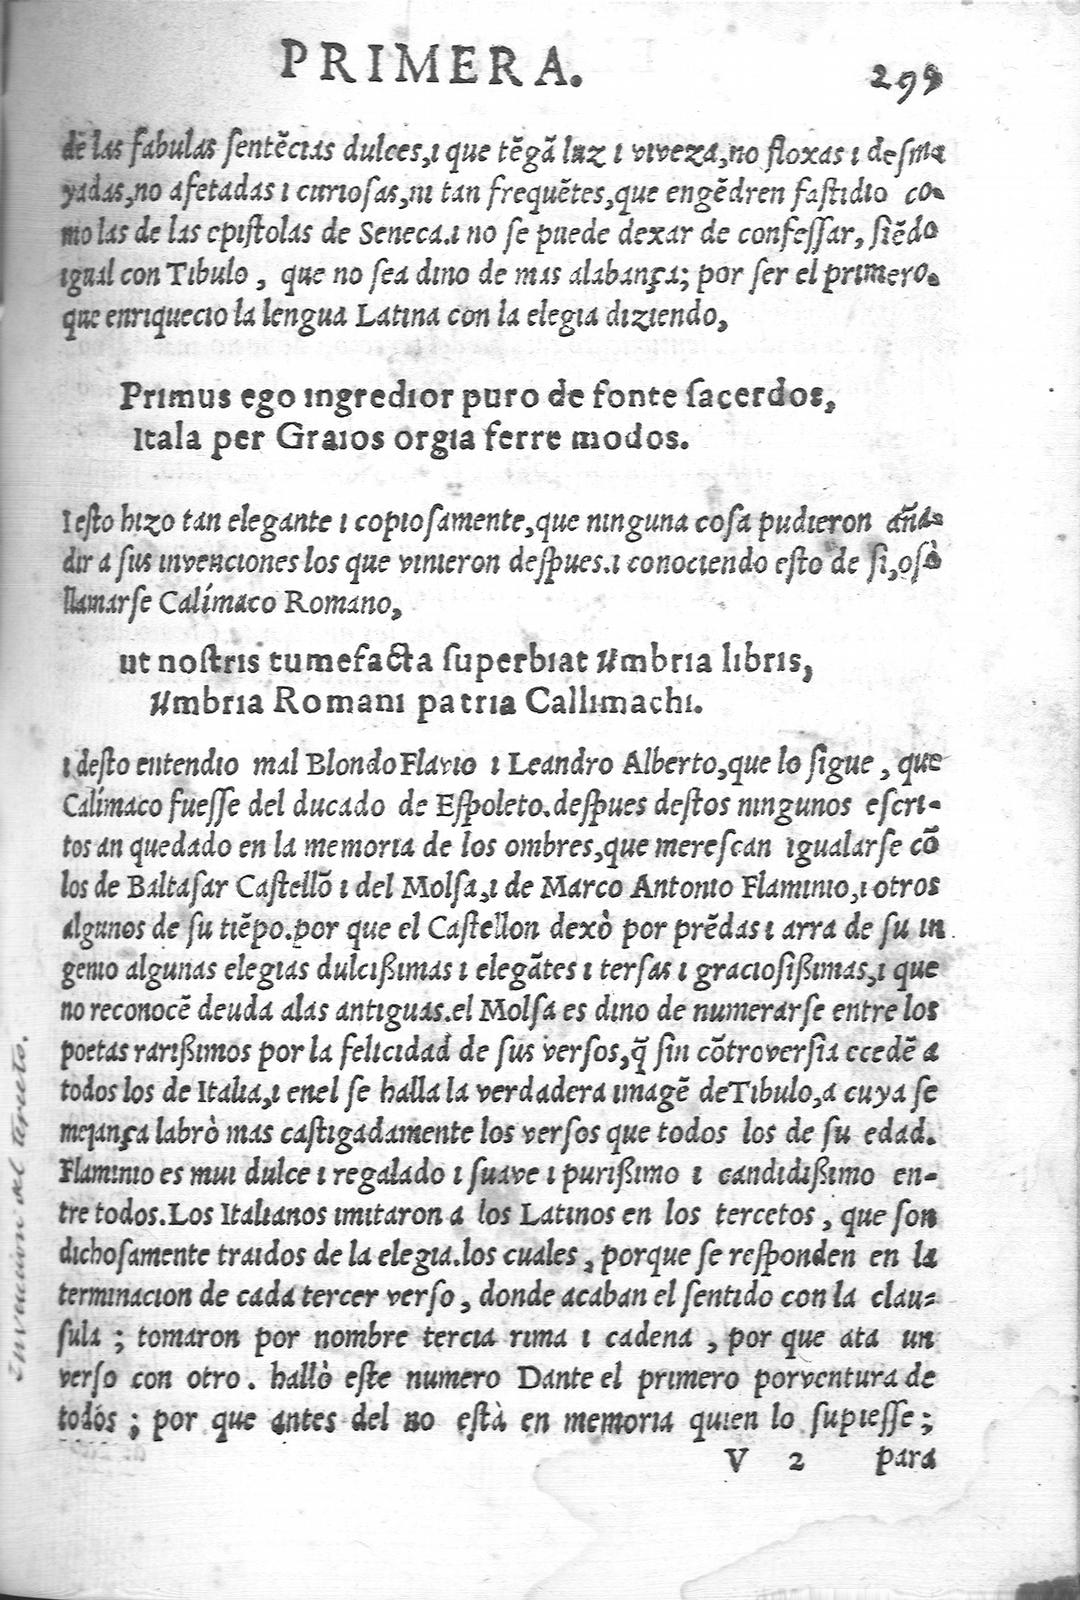 PRIMERA. 299
dē las fabulas ſentēcias dulces,ı que tēgā luz ı viveza,no floxas ı deſma
yadas,no afetadas ı curioſas,ni tan frequētes,que engēdren faſtidio co-
mo las de las epiſtolas de Seneca.ı no ſe puede dexar de confeſſar, ſiēdo
igual con Tibulo, que no ſea dino de mas alabança; por ſer el primero.
que enriquecio la lengua Latina con la elegia diziendo,
Primus ego ingredior puro de fonte ſacerdos,
Itala per Graios orgia ferre modos.
I eſto hizo tan elegante ı copioſamente,que ninguna coſa pudieron aña-
dir a ſus invenciones los que vinieron deſpues.ı conociendo eſto de ſi,oſò
llamarſe Calímaco Romano,
ut noſtris tumefacta ſuperbiat Umbria libris,
Umbria Romani patria Callimachi.
ı deſto entendio mal Blondo Flavio ı Leandro Alberto,que lo ſigue, que
Calímaco fueſſe del ducado de Eſpoleto.deſpues deſtos ningunos eſcri-
tos an quedado en la memoria de los ombres,que mereſcan igualarſe cō
los de Baltaſar Caſtellō ı del Molſa,ı de Marco Antonio Flaminio,ı otros
algunos de ſu tiēpo.por que el Caſtellon dexò por prēdas ı arra de ſu in
genio algunas elegias dulcißimas ı elegātes ı terſas ı gracioſißimas,ı que
no reconocē deuda alas antiguas.el Molſa es dino de numerarſe entre los
poetas rarißimos por la felicidad de ſus verſos,q̄ ſin cōtroverſia ecedē a
todos los de Italia,ı enel ſe halla la verdadera imagē de Tibulo,a cuya ſe
mejança labrò mas caſtigadamente los verſos que todos los de ſu edad.
Flaminio es mui dulce ı regalado ı ſuave ı purißimo ı candidißimo en-
tre todos.Los Italianos imitaron a los Latinos en los tercetos, que ſon
dichoſamente traidos de la elegia.los cuales, porque ſe reſponden en la
terminacion de cada tercer verſo, donde acaban el ſentido con la clau-
ſula; tomaron por nombre tercia rima ı cadena, por que ata un
verſo con otro. hallò eſte numero Dante el primero porventura de
todos; por que antes del no eſtà en memoria quien lo ſupieſſe;
V 2 para
Invencion del terceto.